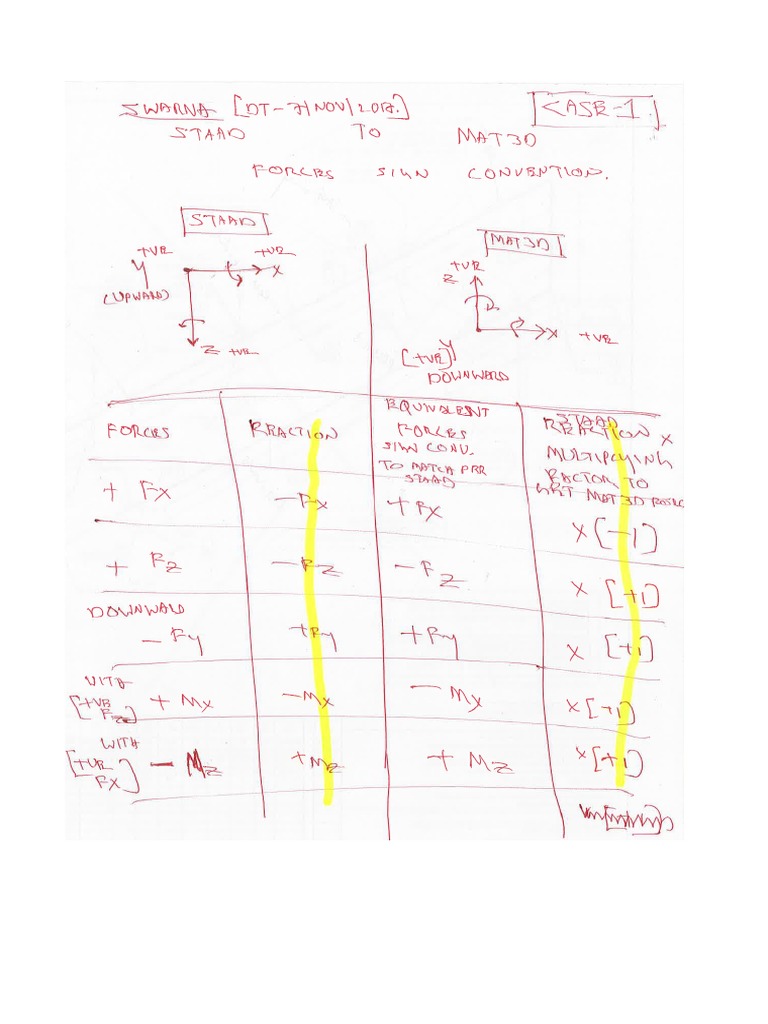 SWARNA [DT-7/NOV/2017.]
CASE-1.
STAAD TO MAT3D
FORCES SIGN CONVENTION.
STAAD
MAT3D
+VE
+VE
Y
X
(UPWARD)
Z +VE
+VE
Z
X +VE
[+VE] Y
DOWNWARD
FORCES
REACTION
EQUIVALENT
FORCES
SIGN CONV.
TO MATCH PER
STAAD
STAAD
REACTION X
MULTIPLYING
FACTOR TO
GET MAT3D
+ FX
-FX
+FX
X[-1]
+ FZ
-FZ
-FZ
X [+1]
DOWNWARD
- FY
+FY
+FY
X [+1]
WITH
[+VE
FZ]
+ MX
-MX
- MX
X[+1]
WITH
[+VE
FX]
- MZ
+MZ
+ MZ
X[+1]